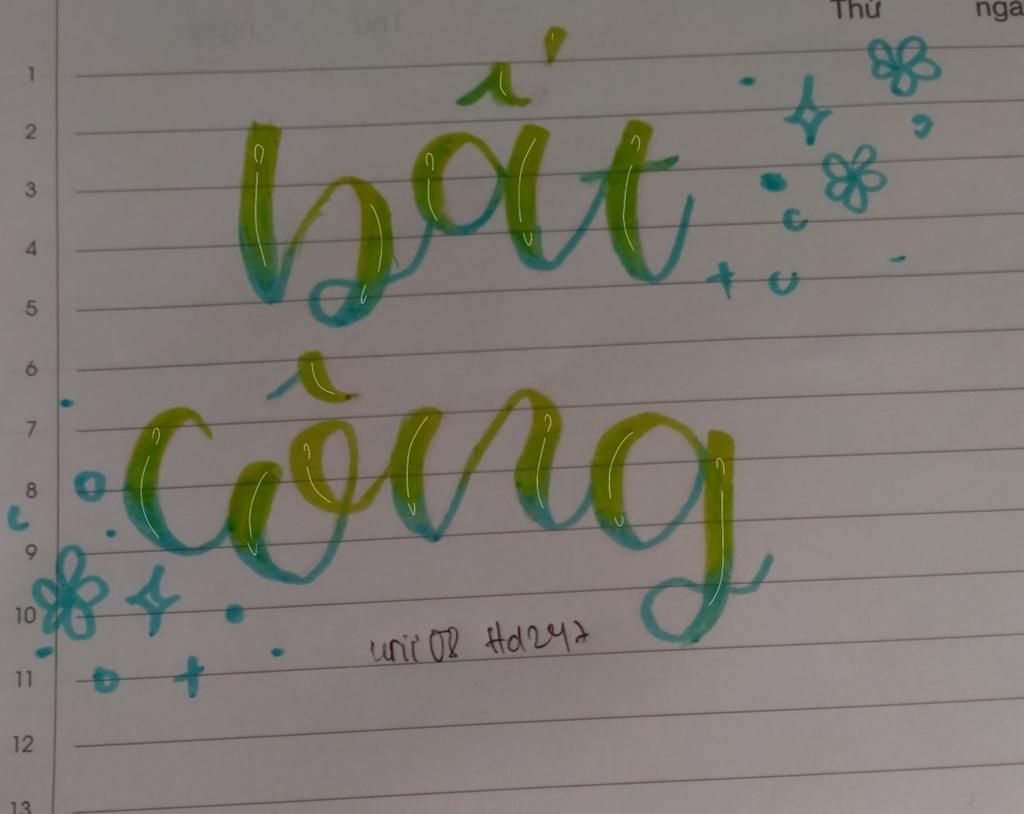 Thứ ngà
1
2
bất
3
4
5
6
7
công
8
9
10
unii 08 Hd247
11
12
13